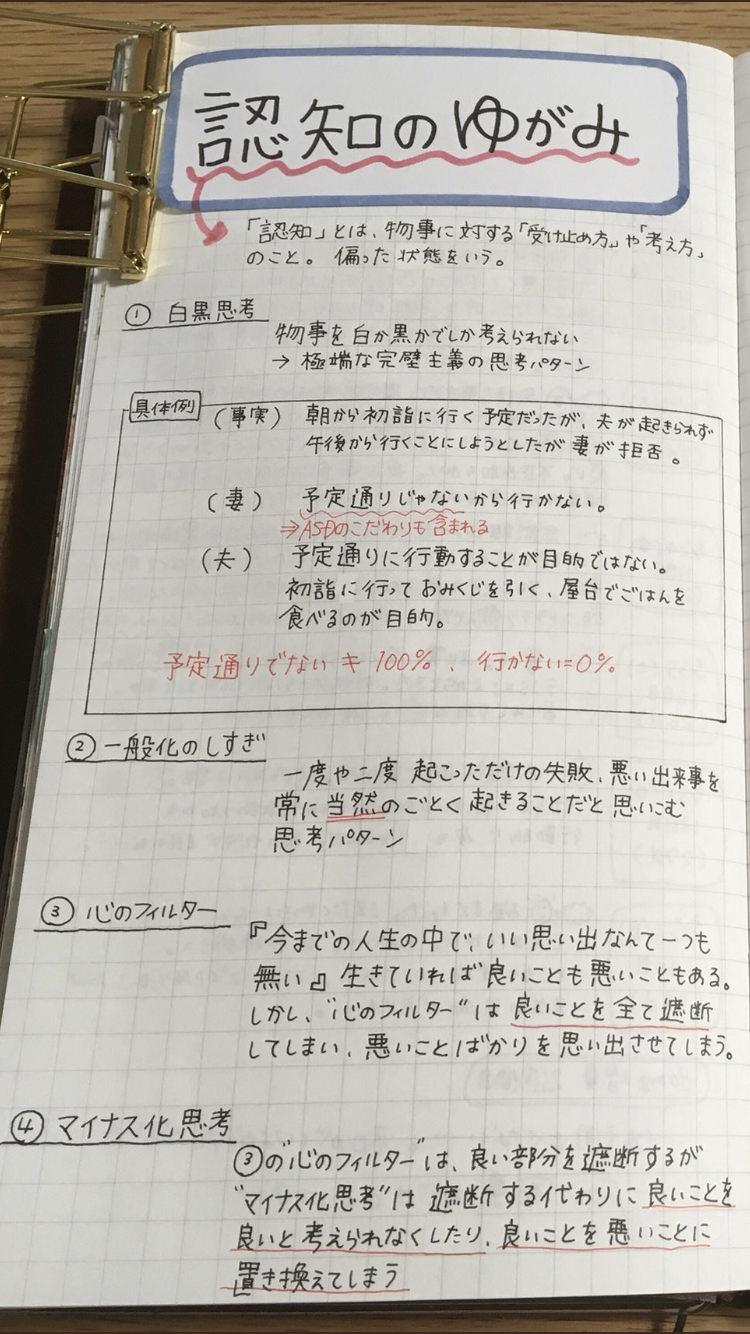 認知のゆがみ
「認知」とは、物事に対する「受け止め方」や「考え方」
のこと。 偏った状態をいう。
① 白黒思考
物事を白か黒かでしか考えられない
→ 極端な完璧主義の思考パターン
具体例
(事実) 朝から初詣に行く予定だったが、夫が起きられず
午後から行くことにしようとしたが妻が拒否。
(妻) 予定通りじゃないから行かない。
⇒ASDのこだわりも含まれる
(夫) 予定通りに行動することが目的ではない。
初詣に行っておみくじを引く、屋台でごはんを
食べるのが目的。
予定通りでない ≠ 100%、行かない=0%
② 一般化のしすぎ
一度や二度 起こっただけの失敗、悪い出来事を
常に当然のごとく起きることだと思いこむ
思考パターン
③ 心のフィルター
『今までの人生の中で、いい思い出なんて一つも
無い』生きていれば良いことも悪いこともある。
しかし、“心のフィルター”は良いことを全て遮断
してしまい、悪いことばかりを思い出させてしまう。
④ マイナス化思考
③の“心のフィルター”は、良い部分を遮断するが
“マイナス化思考”は遮断する代わりに良いことを
良いと考えられなくしたり、良いことを悪いことに
置き換えてしまう